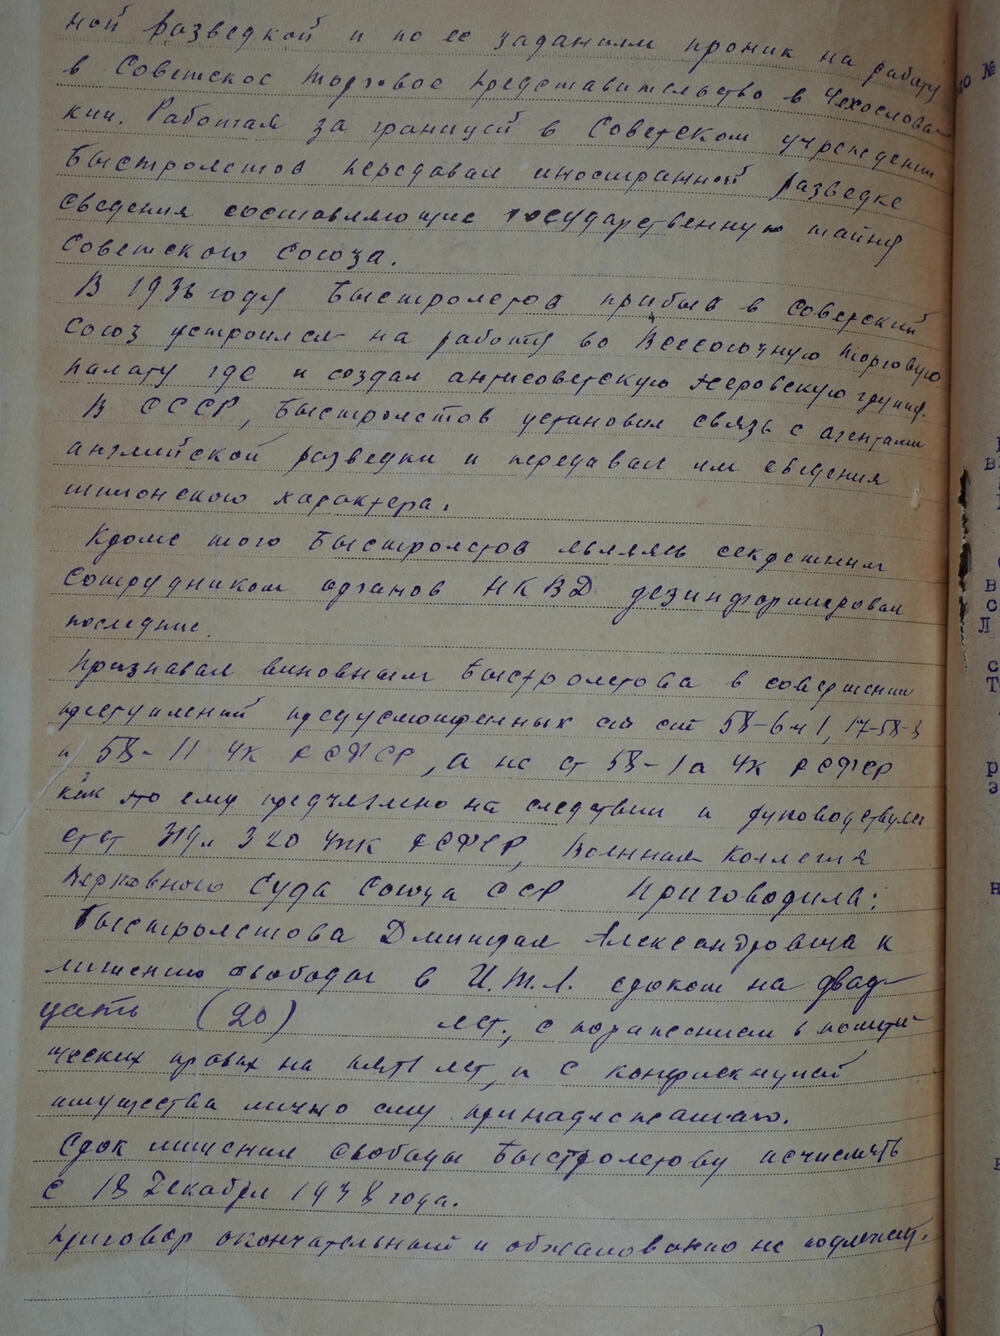 ной разведкой и по ее заданиям проник на работу
в Советское торговое представительство в Чехослова-
кии. Работая за границей в Советском учреждении
Быстролетов передавал иностранной разведке
сведения составляющие государственную тайну
Советского Союза.
В 1936 году Быстролетов прибыв в Советский
Союз устроился на работу во Всесоюзную торговую
палату где и создал антисоветскую эсеровскую группу.
В СССР, Быстролетов установил связь с агентами
английской разведки и передавал им сведения
шпионского характера.
Кроме того Быстролетов являясь секретным
сотрудником органов НКВД дезинформировал
последние.
Признавая виновным Быстролетова в совершении
преступлений предусмотренных ст ст 58-6 ч 1, 17-58-8
и 58-11 УК РСФСР, а не ст 58-1а УК РСФСР
как это ему предъявлено на следствии и руководствуясь
ст ст 319 и 320 УПК РСФСР, Военная Коллегия
Верховного Суда Союза ССР Приговорила:
Быстролетова Дмитрия Александровича к
лишению свободы в И.Т.Л. сроком на двад-
цать (20) лет, с поражением в полити-
ческих правах на пять лет, и с конфискацией
имущества лично ему принадлежащего.
Срок лишения свободы Быстролетову исчислять
с 18 декабря 1938 года.
Приговор окончательный и обжалованию не подлежит.
№
в
в
с
Л
с
т
р
э
н